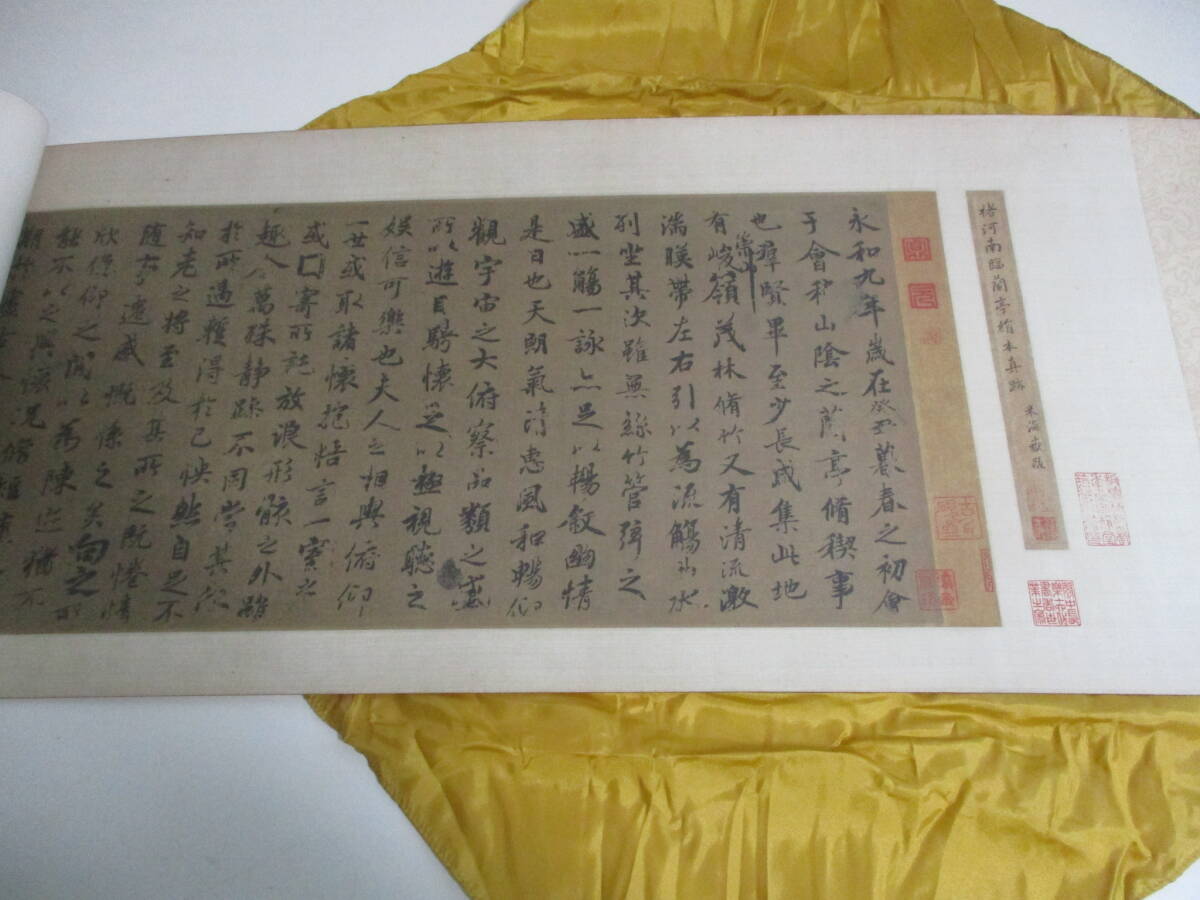 褚河南臨蘭亭絹本真跡 米海嶽跋
永和九年歲在癸丑暮春之初會
于會稽山陰之蘭亭脩稧事
也群賢畢至少長咸集此地
有崇山峻嶺茂林脩竹又有清流激
湍暎帶左右引以為流觴曲水
列坐其次雖無絲竹管弦之
盛一觴一詠亦足以暢敘幽情
是日也天朗氣清惠風和暢仰
觀宇宙之大俯察品類之盛
所以遊目騁懷足以極視聽之
娛信可樂也夫人之相與俯仰
一世或取諸懷抱悟言一室之
或因寄所託放浪形骸之外雖
趣舍萬殊靜躁不同當其欣
於所遇暫得於己怏然自足不
知老之將至及其所之既惓情
隨事遷感慨係之矣向之所
欣俛仰之間以為陳迹猶不
能不以之興懷況脩短隨
期於盡古人